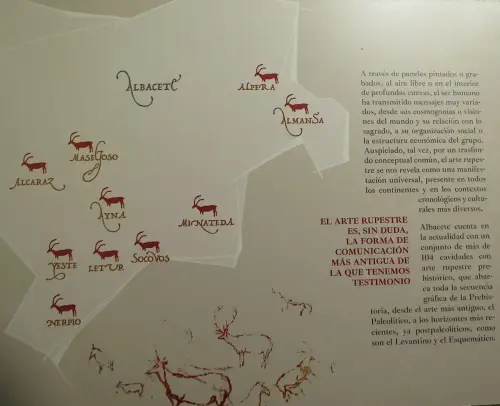 ALBACETE
ALPERA
ALMANSA
MASEGOSO
ALCARAZ
AYNA
MINATEDA
YESTE
LETUR
SOCOVOS
NERPIO
A través de paneles pintados o gra-
bados, al aire libre o en el interior
de profundas cuevas, el ser humano
ha transmitido mensajes muy varia-
dos, desde sus cosmogonías o visio-
nes del mundo y su relación con lo
sagrado, a su organización social o
la estructura económica del grupo.
Auspiciado, tal vez, por un trasfon-
do conceptual común, el arte rupes-
tre se nos revela como una manifes-
tación universal, presente en todos
los continentes y en los contextos
cronológicos y cultu-
rales más diversos.
EL ARTE RUPESTRE
ES, SIN DUDA,
LA FORMA DE
COMUNICACIÓN
MÁS ANTIGUA DE
LA QUE TENEMOS
TESTIMONIO
Albacete cuenta en
la actualidad con un
conjunto de más de
104 cavidades con
arte rupestre pre-
histórico, que abar-
ca toda la secuencia
gráfica de la Prehis-
toria, desde el arte más antiguo, el
Paleolítico, a los horizontes más re-
cientes, ya postpaleolíticos, como
son el Levantino y el Esquemático.